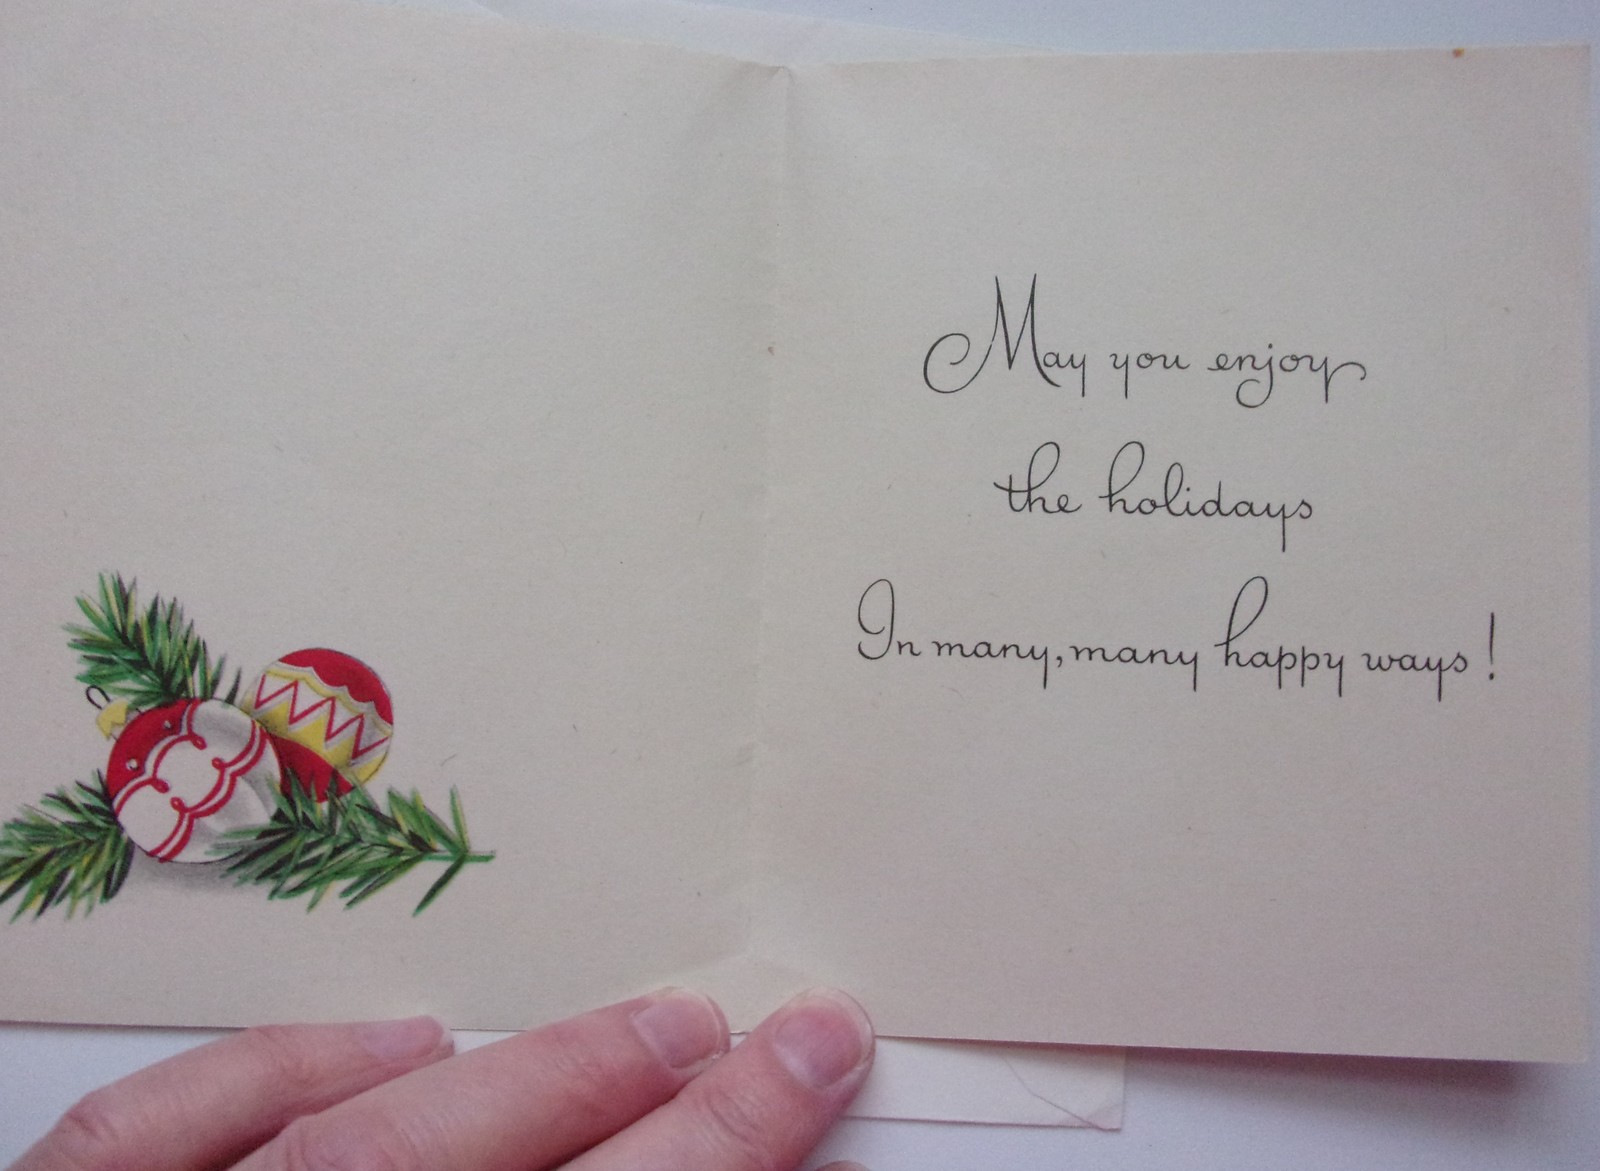 May you enjoy
the holidays
In many, many happy ways!